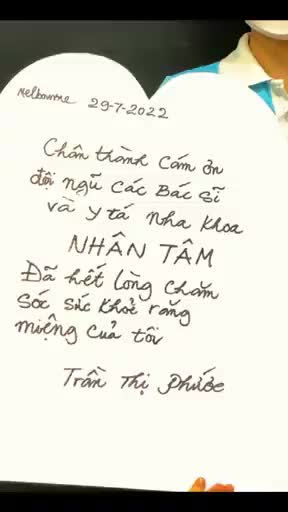 Melbourne 29-7-2022
Chân thành cám ơn
đội ngũ các Bác sĩ
và y tá nha khoa
NHÂN TÂM
Đã hết lòng chăm
sóc sức khoẻ răng
miệng của tôi
Trần Thị Phước